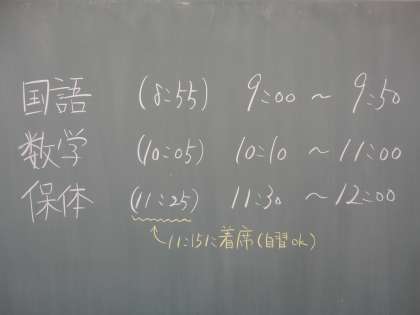 国語 (8:55) 9:00 ~ 9:50
数学 (10:05) 10:10 ~ 11:00
保体 (11:25) 11:30 ~ 12:00
11:15に着席(自習ok)